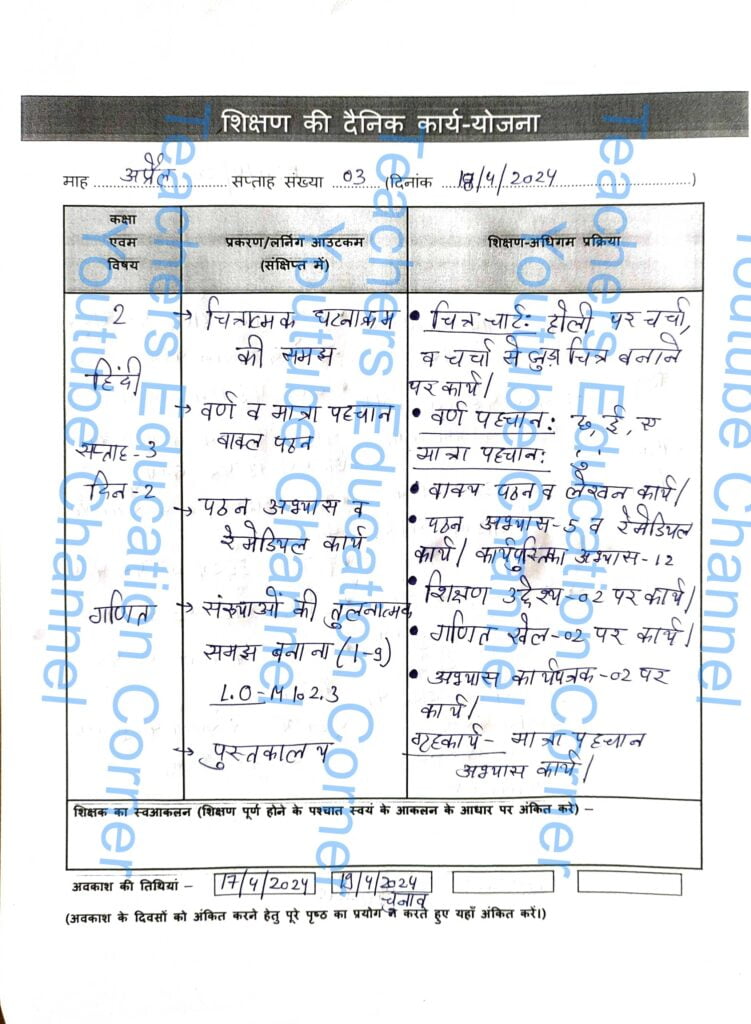 शिक्षण की दैनिक कार्य-योजना
माह ...अप्रैल... सप्ताह संख्या ...03... (दिनांक ...18/4/2024...)
कक्षा
एवम
विषय
प्रकरण/लर्निंग आउटकम
(संक्षिप्त में)
शिक्षण-अधिगम प्रक्रिया
2
हिंदी
सप्ताह-3
दिन-2
गणित
→ चित्रात्मक घटनाक्रम
की समझ
→ वर्ण व मात्रा पहचान
पठन
→ पठन अभ्यास व
रेमेडियल कार्य
→ संख्याओं की तुलनात्मक
समझ बनाना (1-9)
L.O-M 102.3
→ पुस्तकालय
• चित्र चार्ट: होली पर चर्चा,
व चर्चा से जुड़ा चित्र बनाने
पर कार्य।
• वर्ण पहचान: ई,
मात्रा पहचान:
• वाक्य पठन व लेखन कार्य।
• पठन अभ्यास-5 व रेमेडियल
कार्य। कार्यपुस्तिका अभ्यास-12
• शिक्षण उद्देश्य-02 पर कार्य।
• गणित खेल-02 पर कार्य।
• अभ्यास कार्यपत्रक-02 पर
कार्य।
गृहकार्य- मात्रा पहचान
अभ्यास कार्य।
शिक्षक का स्वआकलन (शिक्षण पूर्ण होने के पश्चात स्वयं के आकलन के आधार पर अंकित करे) –
अवकाश की तिथियां – 17/4/2024 19/4/2024
चुनाव
(अवकाश के दिवसों को अंकित करने हेतु पूरे पृष्ठ का प्रयोग न करते हुए यहाँ अंकित करें।)
Teachers Education Corner
Youtube Channel
Teachers Education Corner
Youtube Channel
Teachers Education Corner
Youtube Channel